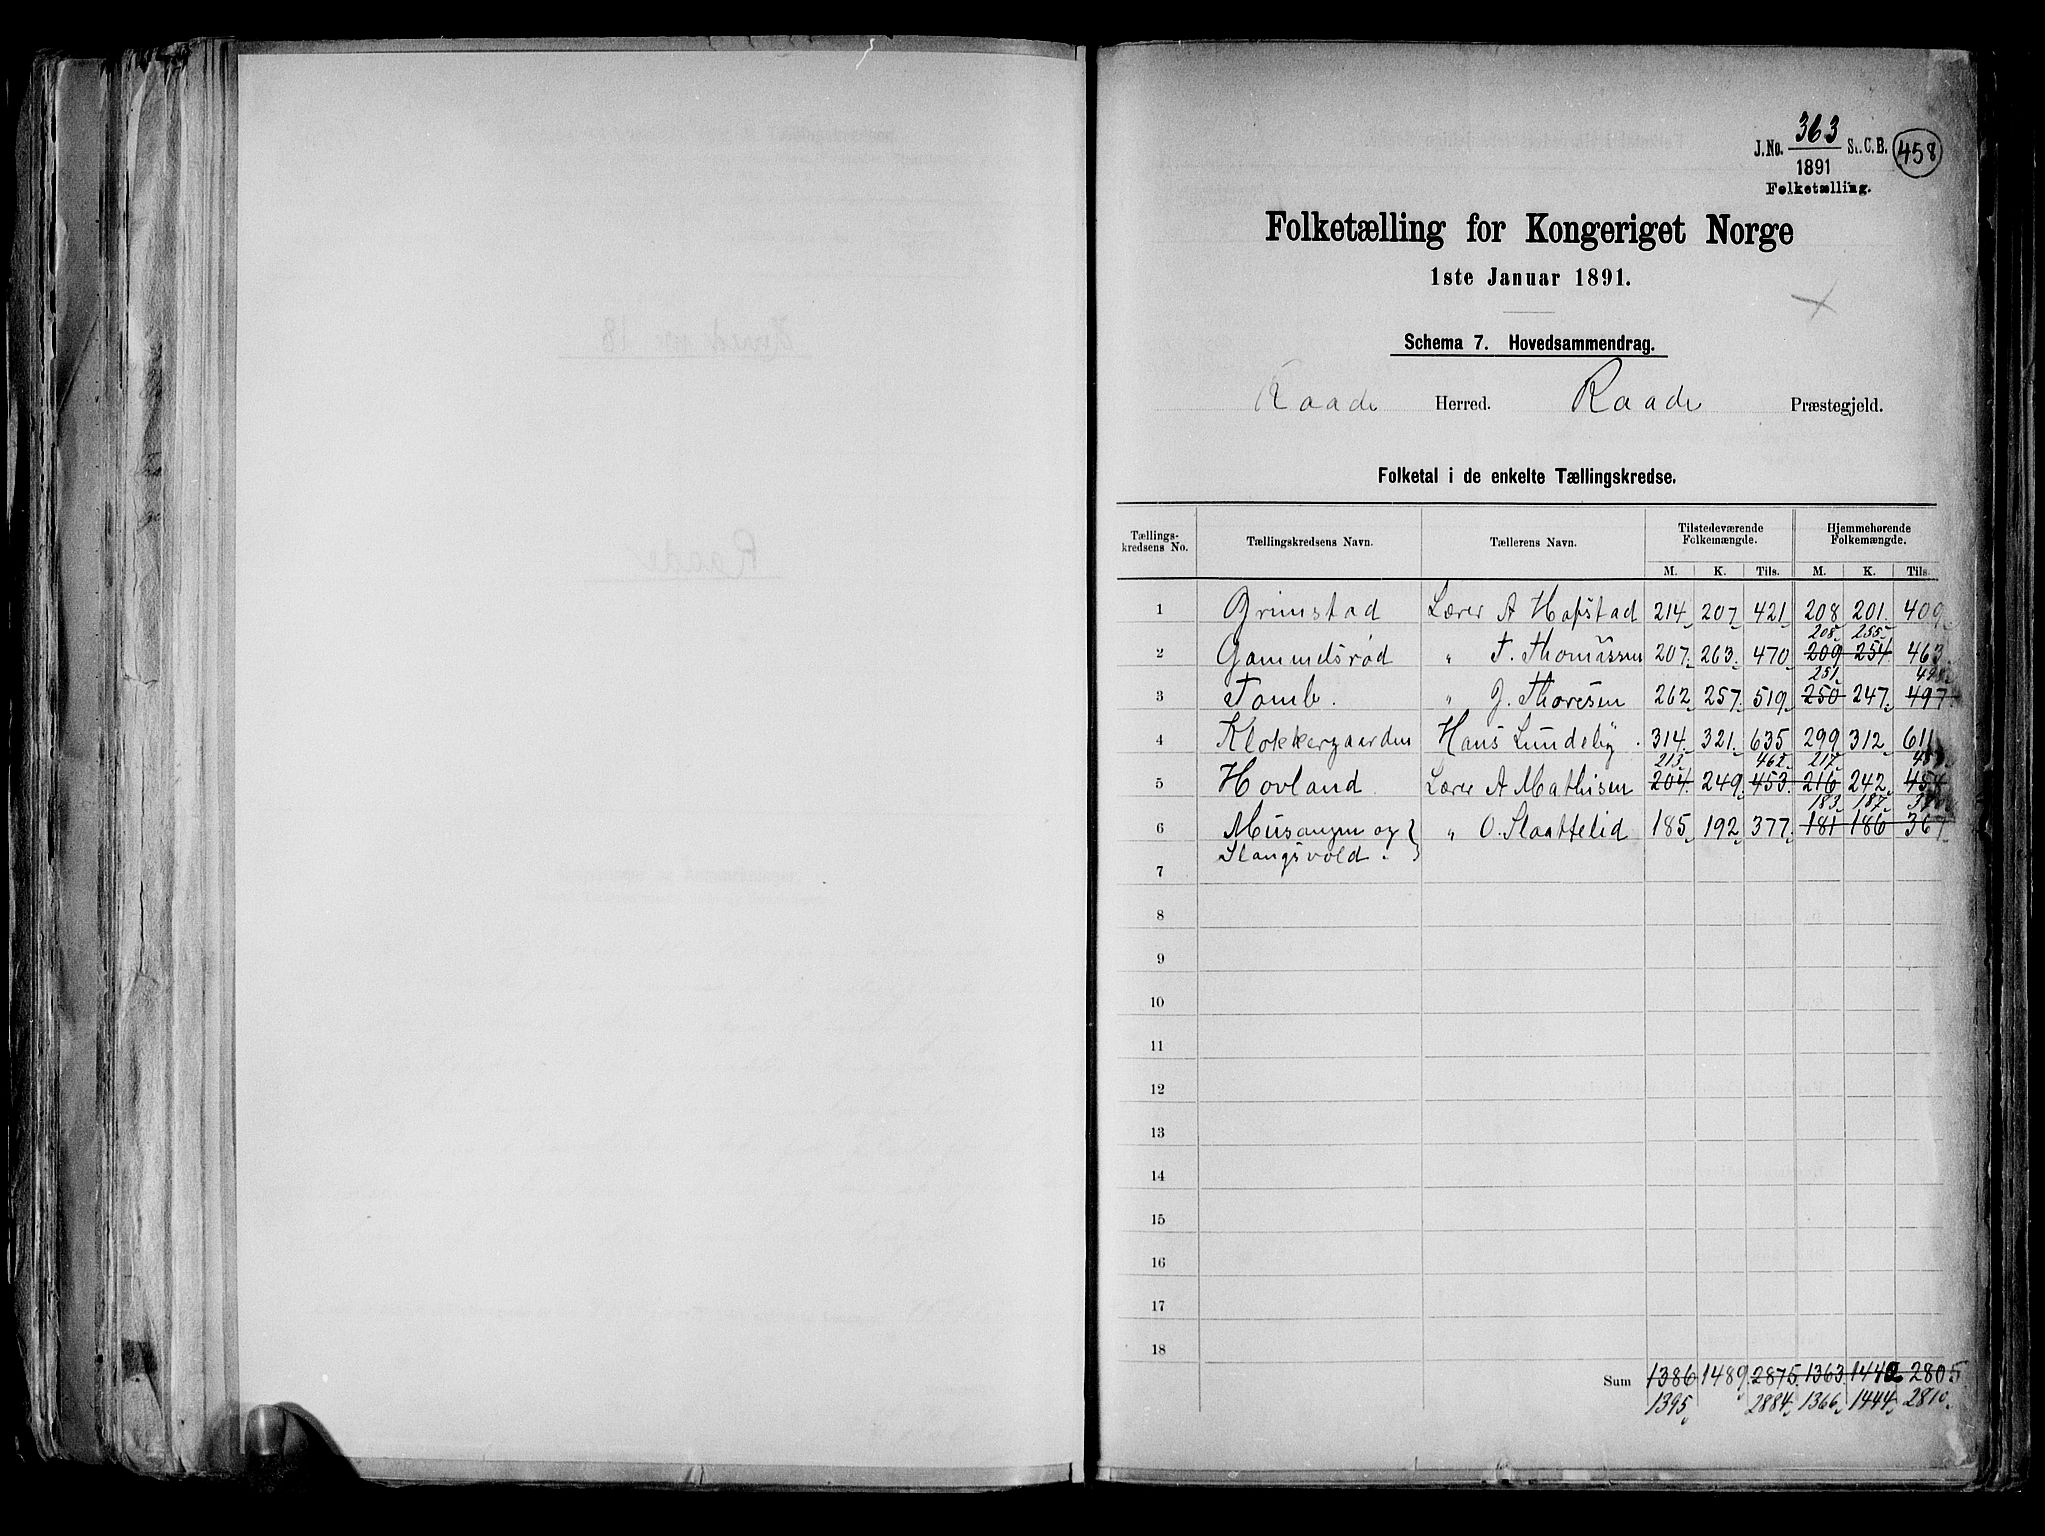 J.No. 363 St. C.B. 458
1891
Folketælling.
Folketælling for Kongeriget Norge
1ste Januar 1891.
Schema 7. Hovedsammendrag.
Raade Herred. Raade Præstegjeld.
Folketal i de enkelte Tællingskredse.
Tællings-kredsens No. Tællingskredsens Navn. Tællerens Navn. Tilstedeværende Folkemængde. Hjemmehørende Folkemængde.
M. K. Tils. M. K. Tils.
1 Grimstad Lærer A Hafstad 214 207 421 208 201 409
208 255
2 Gammelsrød " T. Thomassen 207 263 470 209 254 463
251 498
3 Tomb. " J. Thoresen 262 257 519 250 247 497
4 Klokkergaarden Hans Lundeby. 314 321 635 299 312 611
213 462 217 459
5 Hovland Lærer A Mathisen 204 249 453 216 242 458
183 187 370
6 Musangen og } " O. Slaattelid 185 192 377 181 186 367
Slangsvold.
7
8
9
10
11
12
13
14
15
16
17
18
Sum 1386 1489 2875 1363 1442 2805
1395 2884 1366 1444 2810